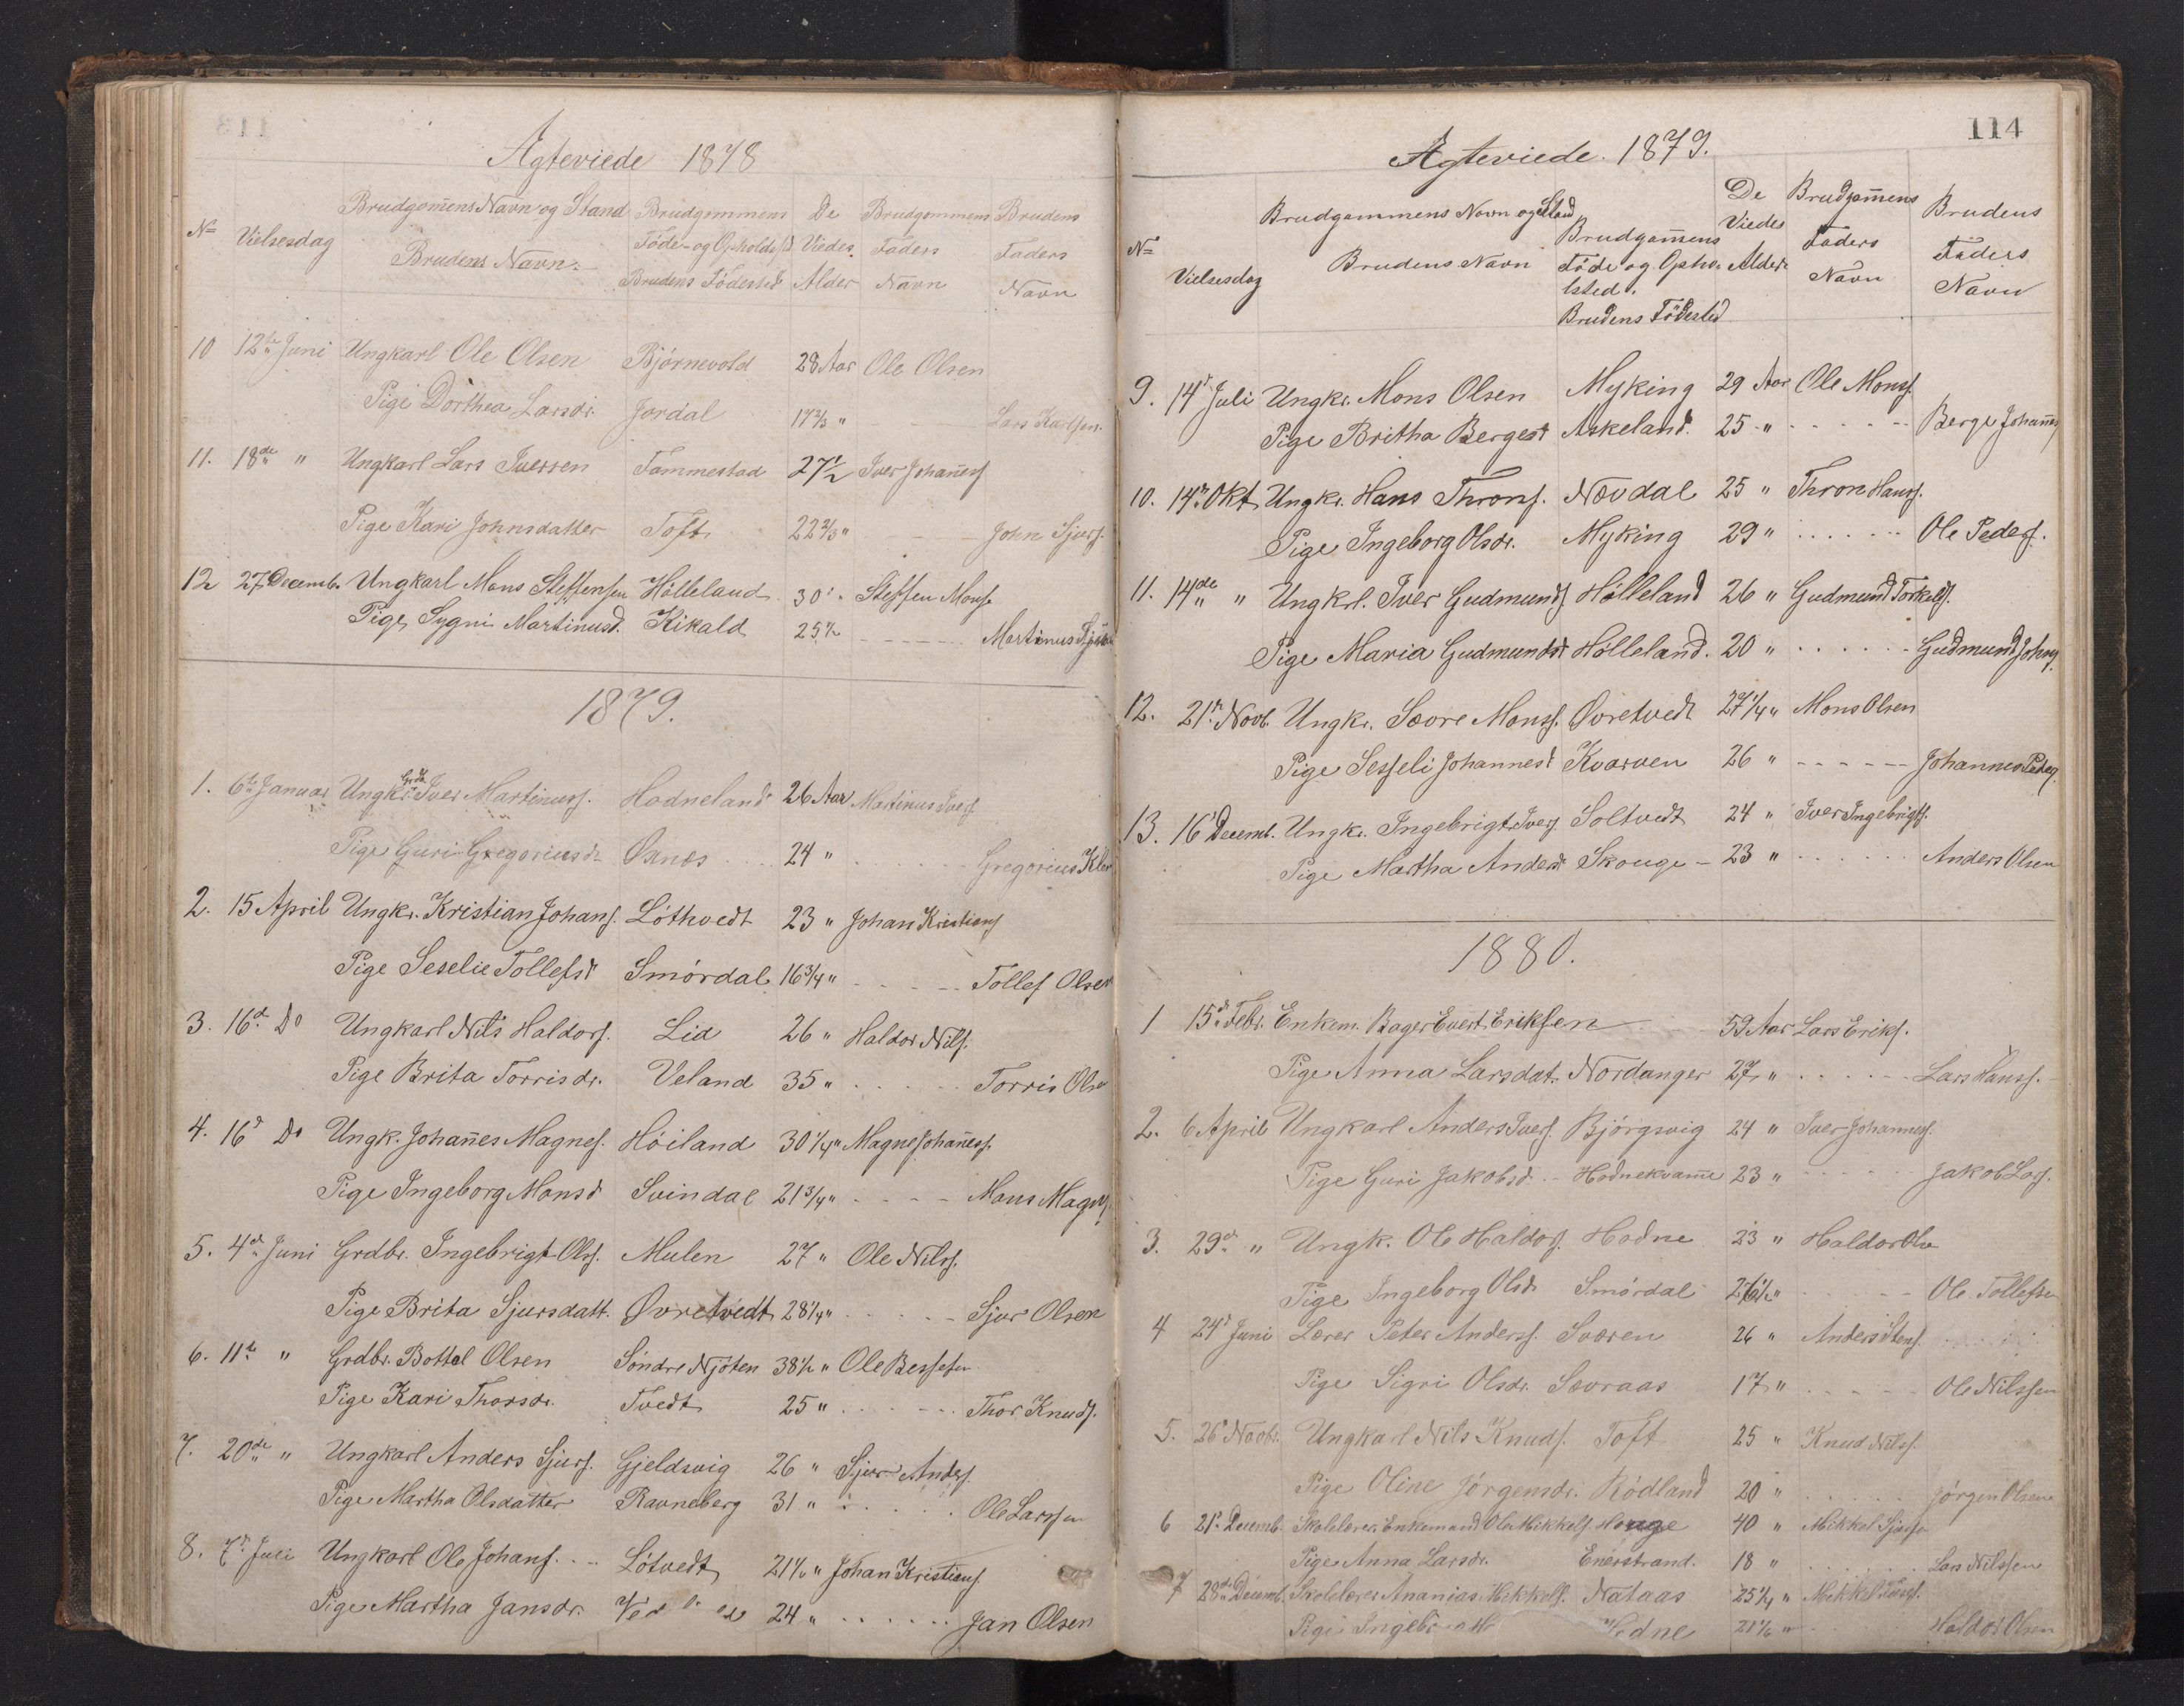 Ægteviede 1878
Nº Vielsesdag Brudgom̄ens Navn og Stand Brudens Navn Brudgommens Föde- og Opholdsst Brudens Födested De Viedes Alder Brudgommens Faders Navn Brudens Faders Navn
10 12te Juni Ungkarl Ole Olsen Bjørnevold 28 Aar Ole Olsen
Pige Dorthea Larsdr. Jordal 17 2/3 " Lars Karlsen.
11. 18de " Ungkarl Lars Iversen Tammestad 27 1/2 Iver Johan̄ess
Pige Kari Johnsdatter Toft 22 2/3 " John Sjurs.
12 27. Decemb. Ungkarl Mons Steffensen Hölleland 30 " Steffen Monse
Pige Sygni Martinusd. Kikald 25 1/2 Martinus
1879.
1. 6te Januar Ungkr. Grdb. Iver Martinuss. Hodneland 26 Aar Martinus Ivers
Pige Guri Gregoriusdr Øxnes 24 " Gregorius
2. 15 April Ungkr. Kristian Johans. Lóthvedt 23 " Johan Kristians
Pige Seselie Tollefsd Smördal 16 3/4 " Tollef Olsen
3. 16d. Do Ungkarl Nils Haldors. Lid 26 " Haldor Nils.
Pige Brita Torrisdr. Veland 35 " Torris Olsen
4. 16d Do Ungk. Johan̄es Magnes. Höiland 30 1/4 " Magne Johan̄ess.
Pige Ingeborg Monsd Svindal 21 3/4 " Mons Magnes.
5. 4d. Juni Grdbr. Ingebrigt Olss. Mulen 27 " Ole Nilss.
Pige Brita Sjursdatt. Øvretvedt 28 1/4 " Sjur Olsen
6. 11te " Grdbr. Bottel Olsen Söndre Njöten 38 1/2 " Ole Bessesen
Pige Kari Thorsdr. Tvedt 25 " Thor Knuds.
7. 20de " Ungkarl Anders Sjurs. Gjeldsvig 26 " Sjur Anders.
Pige Martha Olsdatter Ravneberg 31 " Ole Larssen
8. 7d Juli Ungkarl Ole Johans. Lötvedt 21 1/2 " Johan Kristians.
Pige Martha Jansdr. 24 " Jan Olsen
114
Ægteviede. 1879.
Nº Vielsesdag Brudgommens Navn og Stand Brudens Navn Brudgom̄ens Föde og Opholsted. Brudens Födested De Viedes Alder Brudgom̄ens Faders Navn Brudens Faders Navn
9. 14d Juli Ungkr. Mons Olsen Myking 29 Aar Ole Monss.
Pige Britha Bergesd Askeland. 25 " Berge Johan̄es
10. 14n. Okt Ungkr. Hans Throns. Novdal 25 " Thron Hanss.
Pige Ingeborg Olsdr. Myking 29 " Ole Peders.
11. 14de " Ungkrl. Iver Gudmunds. Hölleland 26 " Gudmund Torkels.
Pige Maria Gudmundsd Hölleland. 20 " Gudmund Johns.
12. 21n. Novb. Ungkr. Sævre Monss. Øvretvedt 27 1/4 " Mons Olsen
Pige Sesseli Johannesd Kvarven 26 " Johannes Peders.
13. 16d Decemb. Ungkr. Ingebrigt Ivers. Soltvedt 24 " Iver Ingebrigts.
Pige Martha Andersd Skouge 23 " Anders Olsen
1880.
1 15d. Febr. Enkem. Bager Evert Eriksen 59 Aar Lars Eriks.
Pige Anna Larsdat. Nordanger 27 " Lars Hanss.
2. 6 April Ungkarl Anders Ivers. Björgsvig 24 " Iver Johanness.
Pige Guri Jakobsd. Hodnekvam̄e 23 " Jakob Lars.
3. 29d. " Ungk. Ole Haldors. Hodne 23 " Haldor Olsen
Pige Ingeborg Olsdr Smördal Ole Tollefsen
4 24d Juni Lærer Peter Anderss. Sværen 26 " Anders
Pige Sigri Olsdr. Sævraas 17 " Ole Nilssen
5. 26d Novbr. Ungkarl Nils Knuds. Toft 25 " Knud Nilss.
Pige Oline Jörgensdr. Rödland 20 " Jörgen Olsen
6 21d. Decemb. Skolelærer Enkemand Ole Mikkels. Houge 40 " Mikkel
Pige Anna Larsdr. Enerstrand. 18 " Lars Nilssen
7 28de Decemb. Skolelærer Ananias Mikkels. Nataas 25 1/4 " Mikkel
Pige Hodne 21 1/2 " Haldor Olsen